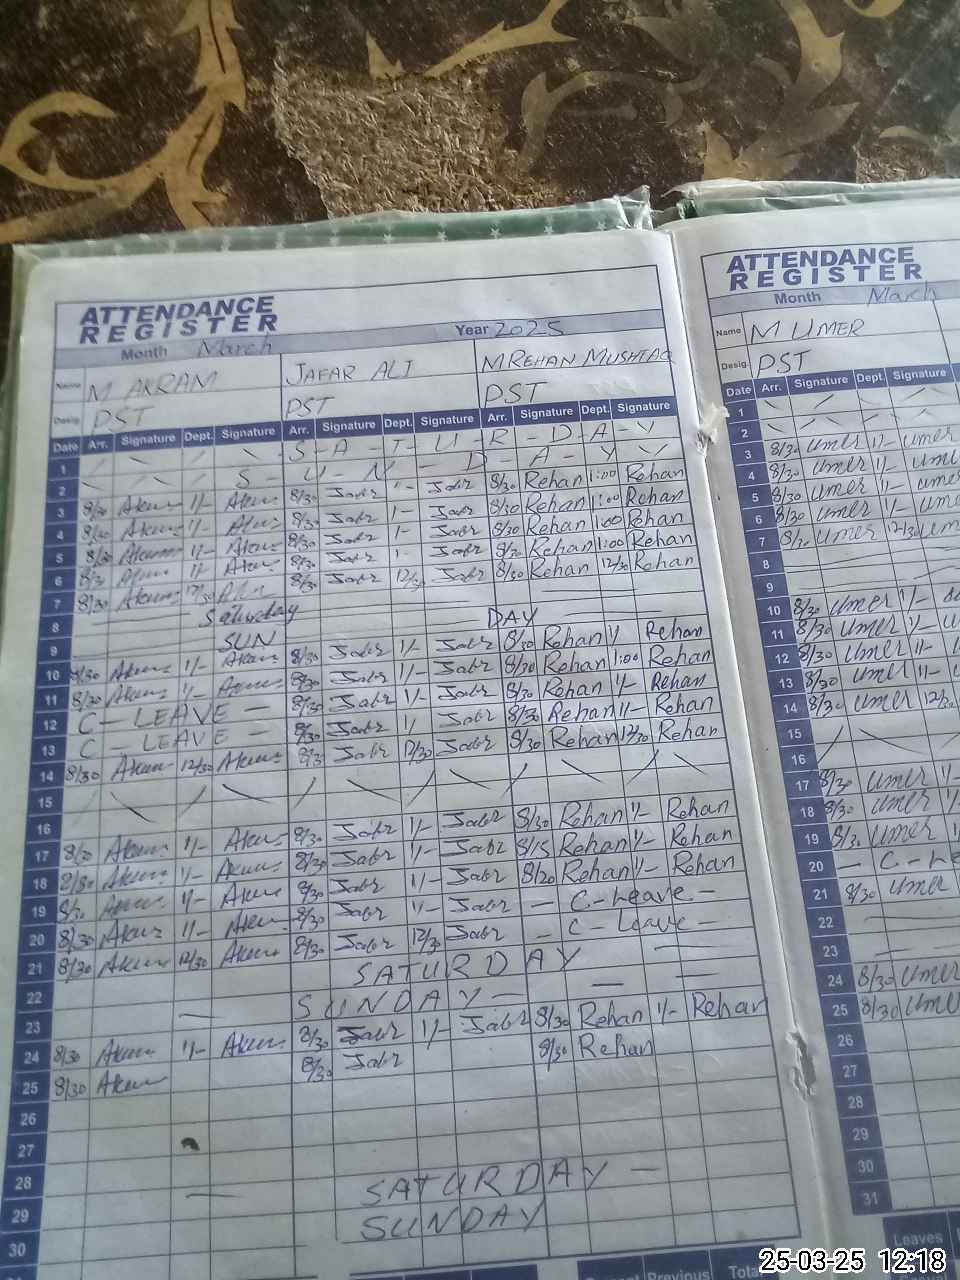 ATTENDANCE
REGISTER
Month March Year 2025
Name M AKRAM JAFAR ALI M REHAN MUSHTAQ
Desig. PST PST PST
Date Arr. Signature Dept. Signature Arr. Signature Dept. Signature Arr. Signature Dept. Signature
1 S-A-T-U-R-D-A-Y
2 S-U-N-D-A-Y
3 8/30 Akram 1/- Akram 8/30 Jabr 1/- Jabr 8/30 Rehan 1:00 Rehan
4 8/30 Akram 1/- Akram 8/30 Jabr 1- Jabr 8/30 Rehan 1:00 Rehan
5 8/30 Akram 1/- Akram 8/30 Jabr 1- Jabr 8/30 Rehan 1:00 Rehan
6 8/30 Akram 1/- Akram 8/30 Jabr 1- Jabr 8/30 Rehan 1:00 Rehan
7 8/30 Akram 12/30 8/30 Jabr 12/30 Jabr 8/30 Rehan 12/30 Rehan
8 Saturday
9 SUN DAY
10 8/30 Akram 1/- Akram 8/30 Jabr 1/- Jabr 8/30 Rehan 1/ Rehan
11 8/30 Akram 1/- Akram 8/30 Jabr 1/- Jabr 8/30 Rehan 1:00 Rehan
12 C-LEAVE - 8/30 Jabr 1/- Jabr 8/30 Rehan 1/- Rehan
13 C-LEAVE - 8/30 Jabr 1/ Jabr 8/30 Rehan 1/- Rehan
14 8/30 Akram 12/30 Akram 8/30 Jabr 12/30 Jabr 8/30 Rehan 12/30 Rehan
15
16
17 8/30 Akram 1/- Akram 8/30 Jabr 1/- Jabr 8/30 Rehan 1/- Rehan
18 8/30 Akram 1/- Akram 8/30 Jabr 1/- Jabr 8/15 Rehan 1/- Rehan
19 8/30 Akram 1/- Akram 8/30 Jabr 1/- Jabr 8/20 Rehan 1/- Rehan
20 8/30 Akram 1/- Akram 8/30 Jabr 1/- Jabr - C-Leave -
21 8/30 Akram 12/30 Akram 8/30 Jabr 12/30 Jabr - C-Leave -
22 SATURDAY
23 SUNDAY
24 8/30 Akram 1/- Akram 8/30 Jabr 1/- Jabr 8/30 Rehan 1/- Rehan
25 8/30 Akram 8/30 Jabr 8/30 Rehan
26
27
28
29 SATURDAY
30 SUNDAY
Previous
ATTENDANCE
REGISTER
Month March
Name M UMER
Desig. PST
Date Arr. Signature Dept. Signature
1
2
3 8/30 Umer 1/- Umer
4 8/30 Umer 1/- Umer
5 8/30 Umer 1/- Ume
6 8/30 Umer 1/- Ume
7 8/30 Umer 12/30 Um
8
9
10 8/30 Umer 1/-
11 8/30 Umer 1/-
12 8/30 Umer 1/-
13 8/30 Umer 1/-
14 8/30 Umer 12/30
15
16
17 8/30 Umer 1/-
18 8/30 Umer
19 8/30 Umer
20 - C-Le
21 8/30 Umer
22
23
24 8/30 Umer
25 8/30 Ume
26
27
28
29
30
31
Leaves
25-03-25 12:18